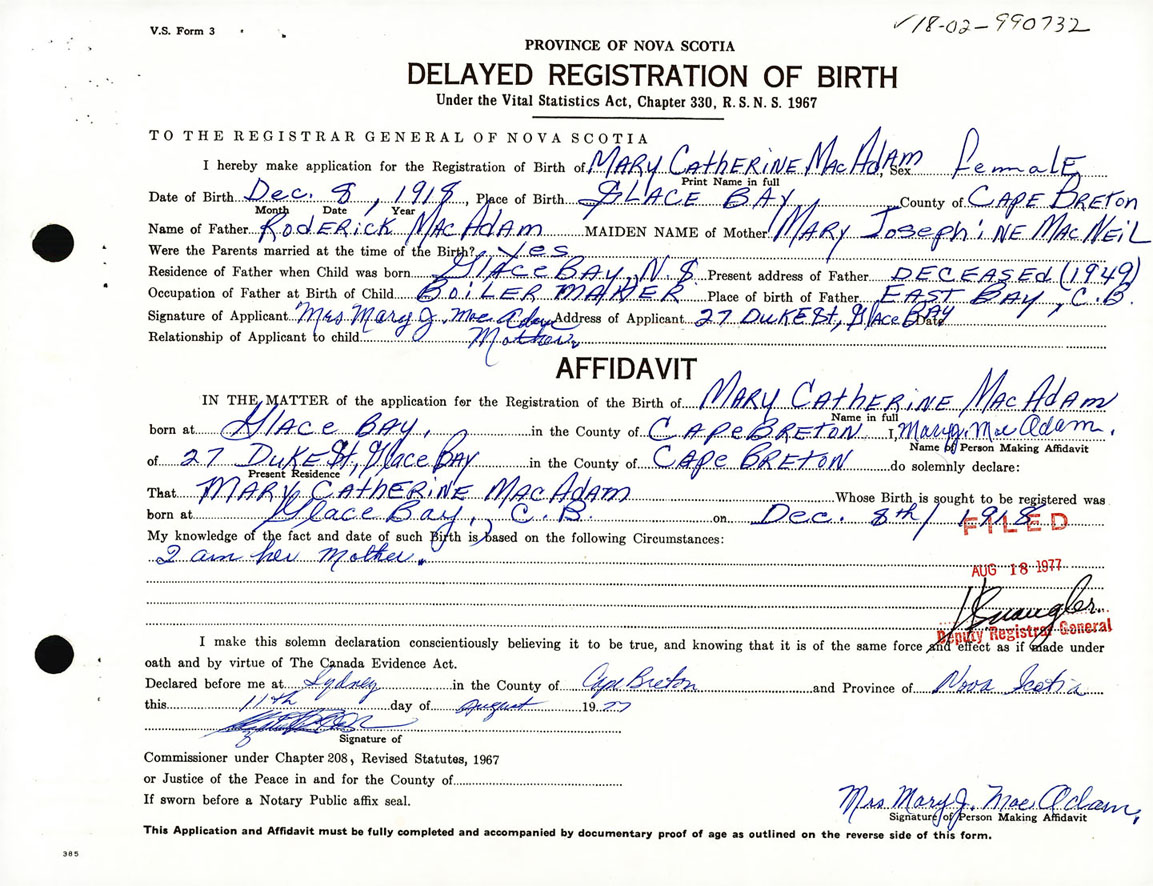 V.S. Form 3
✓18-02-990732
PROVINCE OF NOVA SCOTIA
DELAYED REGISTRATION OF BIRTH
Under the Vital Statistics Act, Chapter 330, R.S.N.S. 1967
TO THE REGISTRAR GENERAL OF NOVA SCOTIA
I hereby make application for the Registration of Birth of MARY CATHERINE MacADAM, Sex female
Print Name in full
Date of Birth Dec. 8, 1918, Place of Birth GLACE BAY, County of CAPE BRETON
Month Date Year
Name of Father RODERICK MACADAM MAIDEN NAME of Mother MARY JosephiNE MacNEiL
Were the Parents married at the time of the Birth? Yes
Residence of Father when Child was born GlaceBAY, N S Present address of Father DECEASEd (1949)
Occupation of Father at Birth of Child BOiLER MAKER Place of birth of Father EAST BAY, C.B.
Signature of Applicant Mrs Mary J. Mac Adam Address of Applicant 27 DukESt, GlaceBAY Date
Relationship of Applicant to child Mother.
AFFIDAVIT
IN THE MATTER of the application for the Registration of the Birth of MARY CATHERINE MacADAM
Name in full
born at GlAce BAY, in the County of CApe BRETON I, Mary J. Mac Adam.
Name of Person Making Affidavit
of 27 DukESt, Glace BAy in the County of CApe BRETON do solemnly declare:
Present Residence
That MARY CATHERINE MacADAM Whose Birth is sought to be registered was
born at Glace Bay, C.B. on Dec. 8th, 1918
FILED
My knowledge of the fact and date of such Birth is based on the following Circumstances:
I am her Mother.
AUG 18 1977
Deputy Registrar General
I make this solemn declaration conscientiously believing it to be true, and knowing that it is of the same force and effect as if made under
oath and by virtue of The Canada Evidence Act.
Declared before me at Sydney in the County of Cape Breton and Province of Nova Scotia
this 11th day of August 1977
Signature of
Commissioner under Chapter 208, Revised Statutes, 1967
or Justice of the Peace in and for the County of
If sworn before a Notary Public affix seal.
Mrs Mary J. Mac Adam,
Signature of Person Making Affidavit
This Application and Affidavit must be fully completed and accompanied by documentary proof of age as outlined on the reverse side of this form.
385